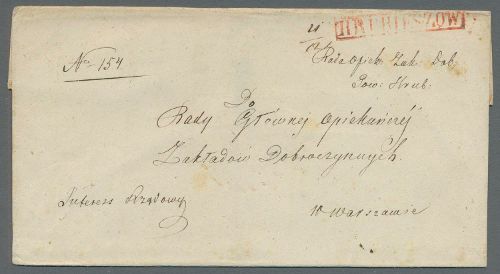 HRUBIESZOW
No 154
Rada Opiek. Zak. Dob.
Pow. Hrub.
Do
Rady Głównej Opiekuńczéj
Zakładów Dobroczynnych.
Interes Rządowy
w Warszawie